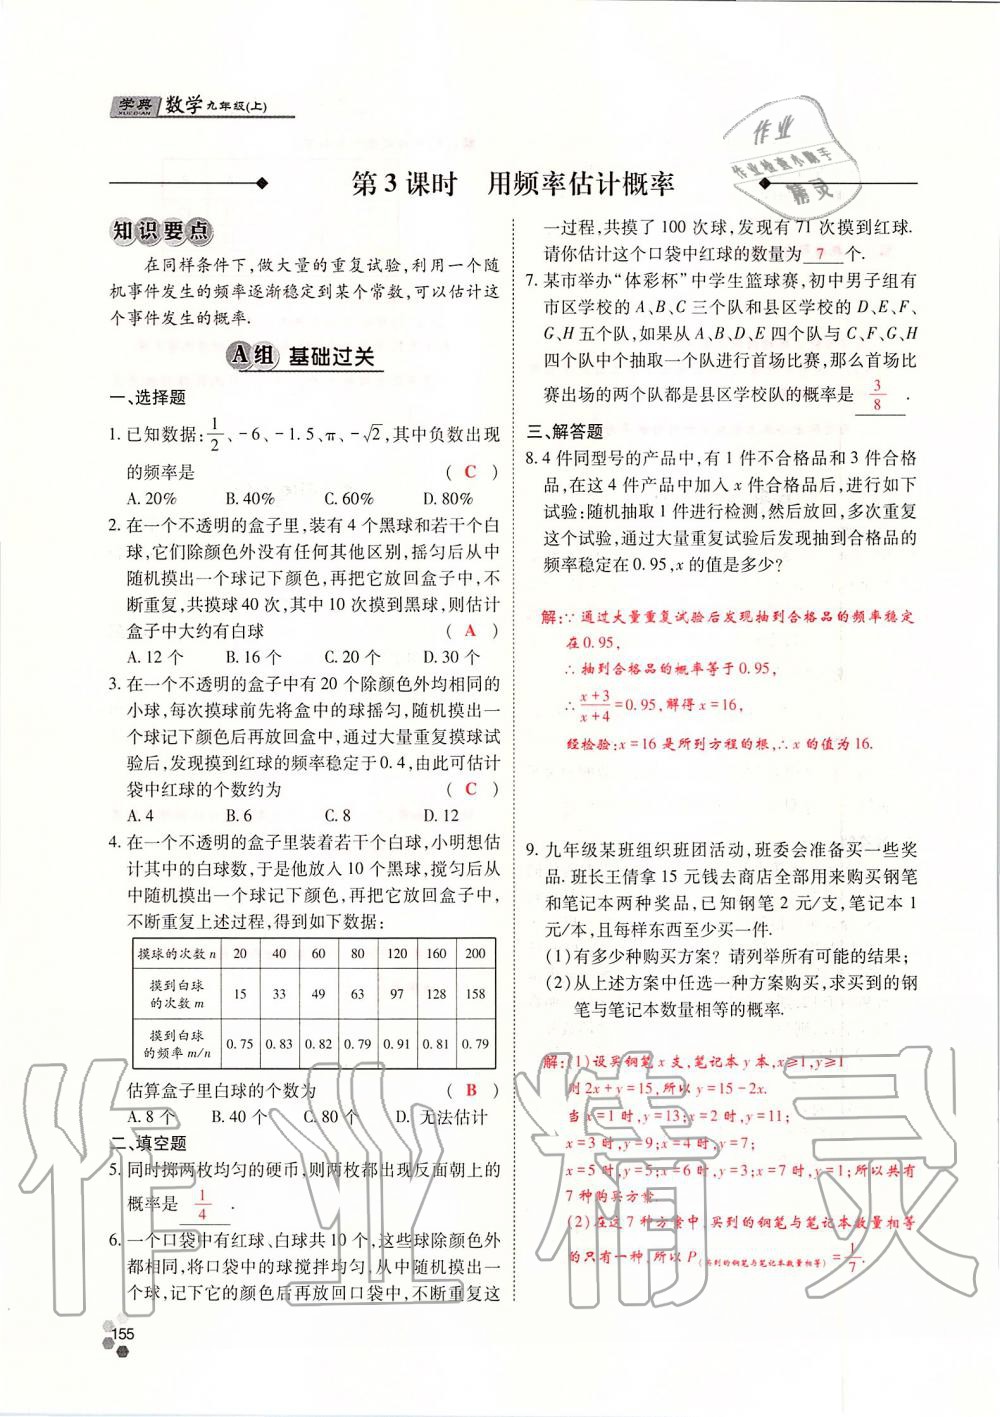 学典
XUEDIAN
数学九年级(上)
作业
作业检查小助手
精灵
第3课时 用频率估计概率
知识要点
在同样条件下,做大量的重复试验,利用一个随
机事件发生的频率逐渐稳定到某个常数,可以估计这
个事件发生的概率.
A组 基础过关
一、选择题
1. 已知数据:1/2、-6、-1.5、π、-√2,其中负数出现
的频率是 ( C )
A. 20% B. 40% C. 60% D. 80%
2. 在一个不透明的盒子里,装有4个黑球和若干个白
球,它们除颜色外没有任何其他区别,摇匀后从中
随机摸出一个球记下颜色,再把它放回盒子中,不
断重复,共摸球40次,其中10次摸到黑球,则估计
盒子中大约有白球 ( A )
A. 12个 B. 16个 C. 20个 D. 30个
3. 在一个不透明的盒子中有20个除颜色外均相同的
小球,每次摸球前先将盒中的球摇匀,随机摸出一
个球记下颜色后再放回盒中,通过大量重复摸球试
验后,发现摸到红球的频率稳定于0.4,由此可估计
袋中红球的个数约为 ( C )
A. 4 B. 6 C. 8 D. 12
4. 在一个不透明的盒子里装着若干个白球,小明想估
计其中的白球数,于是他放入10个黑球,搅匀后从
中随机摸出一个球记下颜色,再把它放回盒子中,
不断重复上述过程,得到如下数据:
摸球的次数n 20 40 60 80 120 160 200
摸到白球
的次数m 15 33 49 63 97 128 158
摸到白球
的频率m/n 0.75 0.83 0.82 0.79 0.91 0.81 0.79
估算盒子里白球的个数为 ( B )
A. 8个 B. 40个 C. 80个 D. 无法估计
二、填空题
5. 同时掷两枚均匀的硬币,则两枚都出现反面朝上的
概率是 1/4 .
6. 一个口袋中有红球、白球共10个,这些球除颜色外
都相同,将口袋中的球搅拌均匀,从中随机摸出一
个球,记下它的颜色后再放回口袋中,不断重复这
155
一过程,共摸了100次球,发现有71次摸到红球.
请你估计这个口袋中红球的数量为 7 个.
7. 某市举办“体彩杯”中学生篮球赛,初中男子组有
市区学校的A、B、C三个队和县区学校的D、E、F、
G、H五个队,如果从A、B、D、E四个队与C、F、G、H
四个队中个抽取一个队进行首场比赛,那么首场比
赛出场的两个队都是县区学校队的概率是 3/8 .
三、解答题
8. 4件同型号的产品中,有1件不合格品和3件合格
品,在这4件产品中加入x件合格品后,进行如下
试验:随机抽取1件进行检测,然后放回,多次重复
这个试验,通过大量重复试验后发现抽到合格品的
频率稳定在0.95,x的值是多少?
解:∵通过大量重复试验后发现抽到合格品的频率稳定
在0.95,
∴抽到合格品的概率等于0.95,
∴(x+3)/(x+4)=0.95,解得x=16,
经检验:x=16是所列方程的根,∴x的值为16.
9. 九年级某班组织班团活动,班委会准备买一些奖
品.班长王倩拿15元钱去商店全部用来购买钢笔
和笔记本两种奖品,已知钢笔2元/支,笔记本1
元/本,且每样东西至少买一件.
(1)有多少种购买方案?请列举所有可能的结果;
(2)从上述方案中任选一种方案购买,求买到的钢
笔与笔记本数量相等的概率.
解:(1)设买钢笔x支,笔记本y本,x≥1,y≥1
则2x+y=15,所以y=15-2x.
当x=1时,y=13;x=2时,y=11;
x=3时,y=9;x=4时,y=7;
x=5时,y=5;x=6时,y=3;x=7时,y=1;所以共有
7种购买方案
(2)在这7种方案中,买到的钢笔与笔记本数量相等
的只有一种,所以P(买到的钢笔与笔记本数量相等)=1/7.
作业精灵